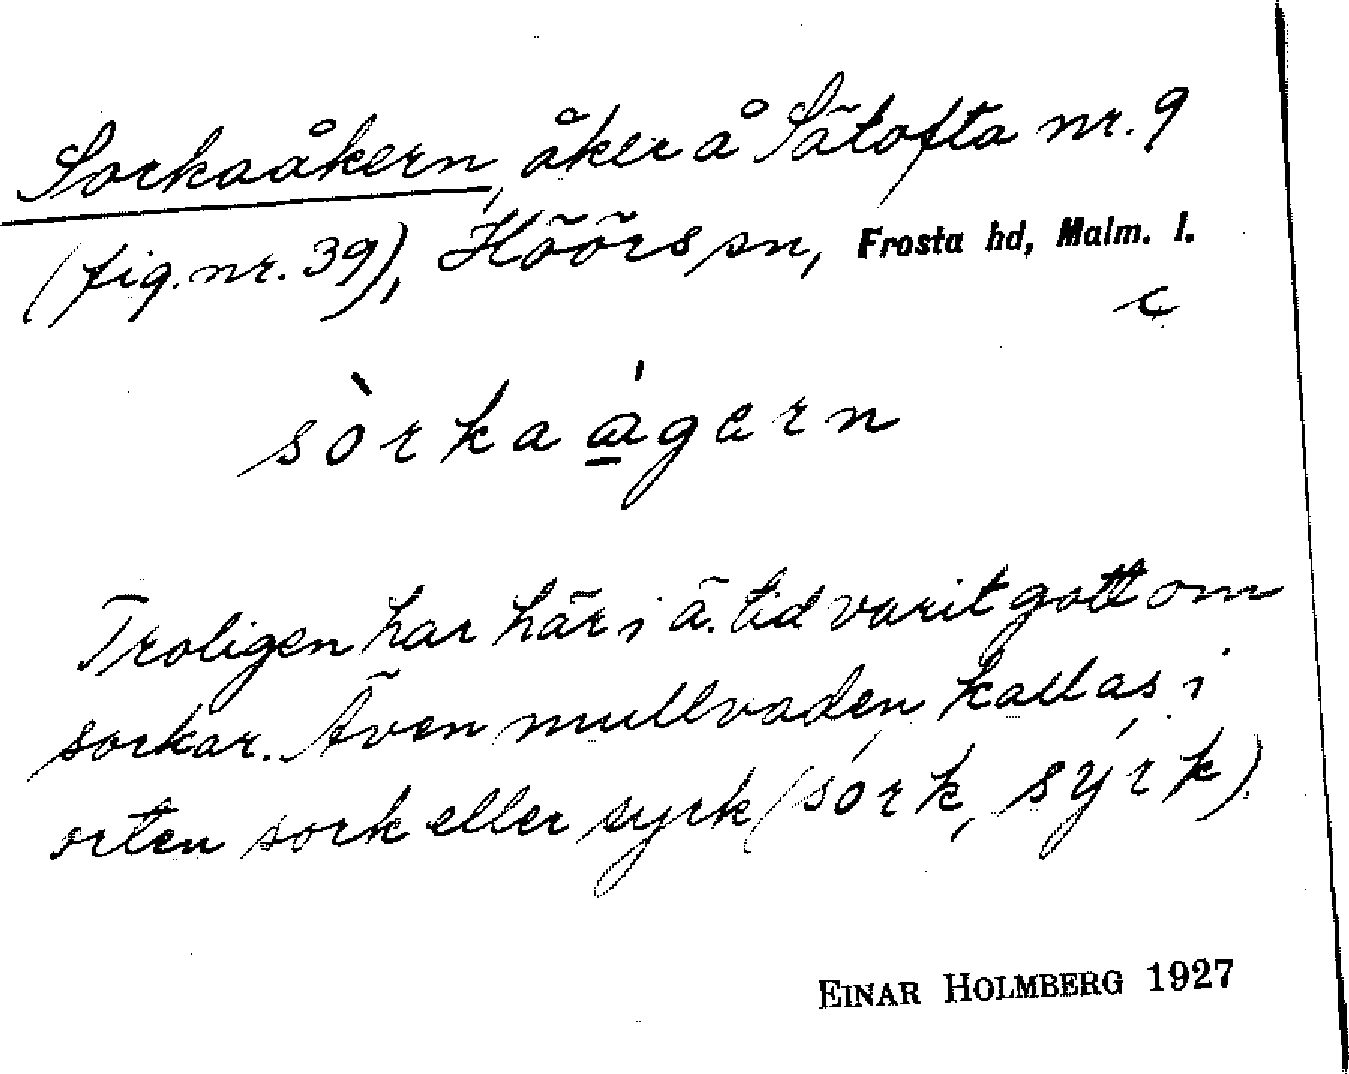 Sorkaåkern, åker å Sätofta nr. 9
(fig. nr. 39), Höörs sn, Frosta hd, Malm. l.
c
sòrkaág̨ern
Troligen har här i ä. tid varit gott om
sorkar. Även mullvaden kallas i
orten sork eller syrk (sórk, sýrk).
EINAR HOLMBERG 1927